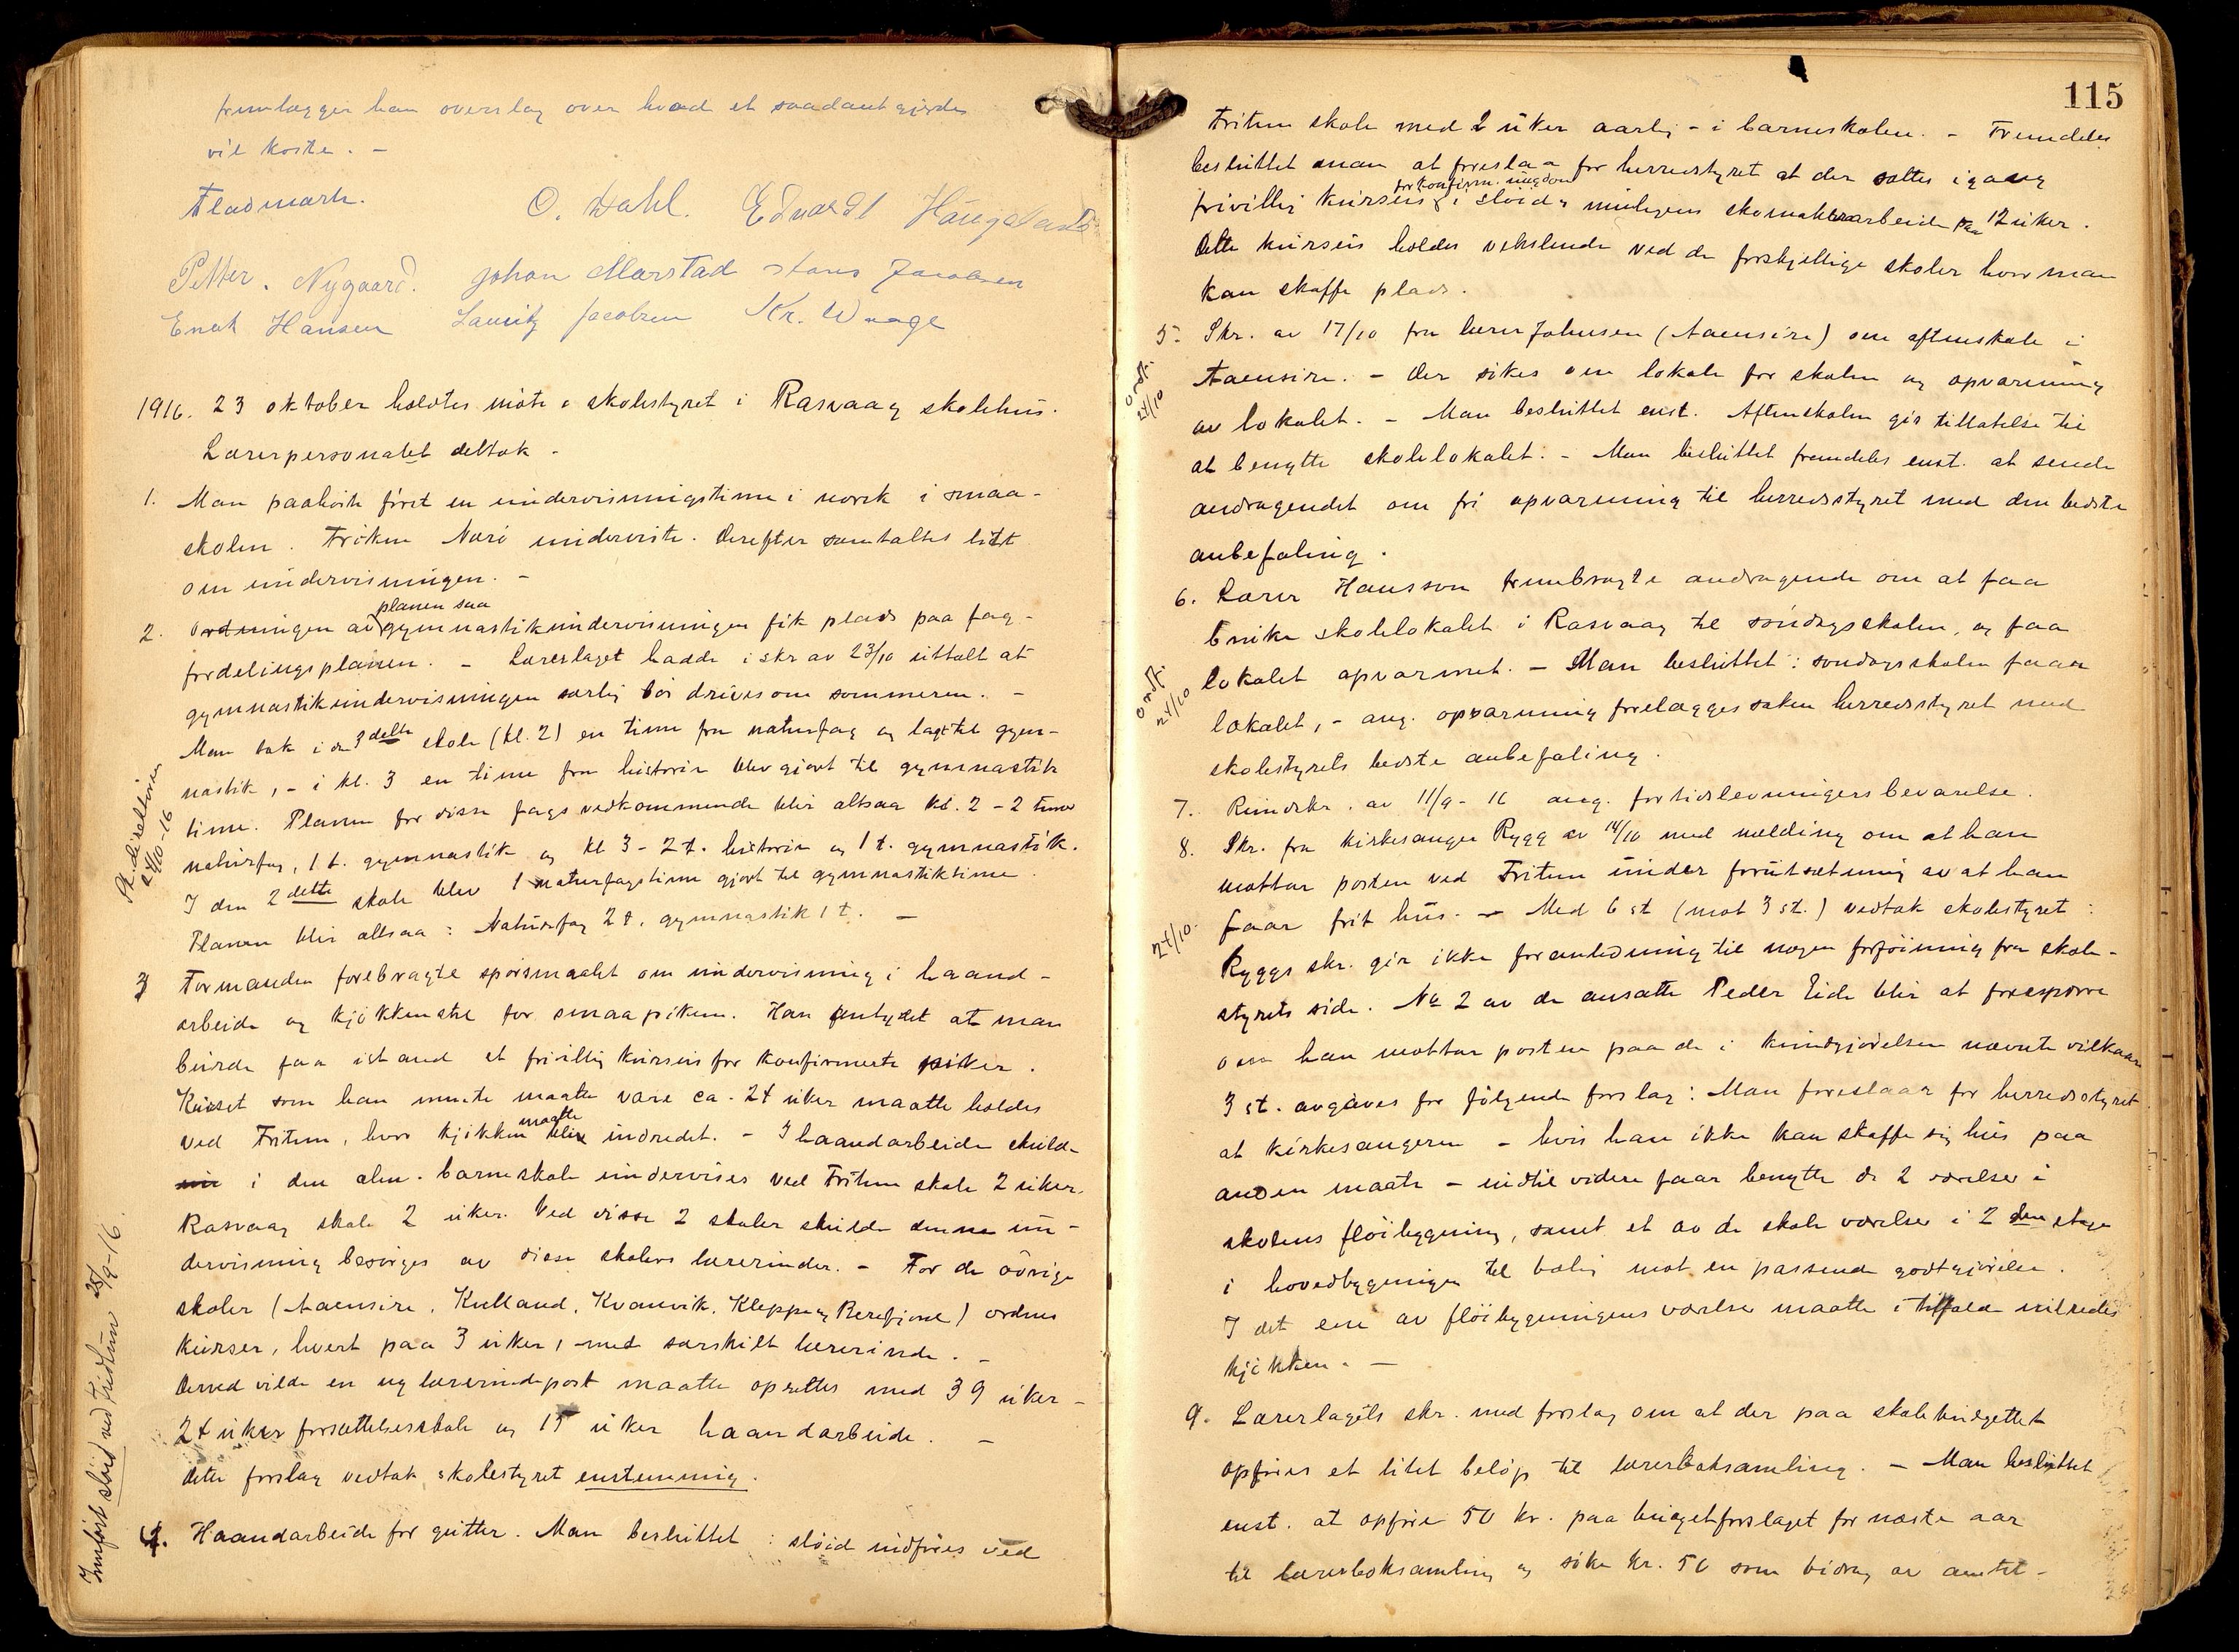 fremlægger han overslag over hvad et saadant gjærde
vil koste. -
Fladmark. O. Dahl. Edvardt Haugeland
Petter. Nygaard. Johan Marstad Jacobsen
Enok Hansen Lauritz Jacobsen Kr. Waage
1916. 23 oktober holdtes møte i skolestyret i Rasvaag skolehus.
Lærerpersonalet deltok -
1. Man paahørte først en undervisningstime i norsk i smaa-
skolen. Frøken underviste. Derefter samtaltes litt
om undervisningen. -
planen saa
2. Ordningen av gymnastikundervisningen fik plads paa fag-
fordelingsplanen. - Lærerlaget hadde i skr av 23/10 uttalt at
gymnastikundervisningen særlig bør drives om sommeren. -
Man tok i den 3delte skole (kl. 2) en time fra naturfag og lagt til gym-
nastik, - i kl. 3 en time fra historie blev gjort til gymnastik
time. Planen for disse fags vedkommende blir altsaa kl. 2 - 2 timer
naturfag, 1 t. gymnastik og kl 3 - 2 t. historie og 1 t. gymnastik.
I den 2delte skole blev 1 naturfagstime gjort til gymnastiktime.
Planen blir altsaa: Naturfag 2 t. gymnastik 1 t. -
Sk.direktøren
24/10-16
3 Formanden forebragte spørsmaalet om undervisning i haand-
arbeide og kjøkkenstel for smaapikene. Han antydet at man
burde faa istand et frivillig kursus for konfirmerte piker.
Kurset som han mente maatte være ca. 24 uker maatte holdes
maatte
ved Fritun, hvor kjøkken blive indredet. - I haandarbeide skulde
i den alm. barneskole undervises ved Fritun skole 2 uker,
Rasvaag skole 2 uker. Ved disse 2 skoler skulde denne un-
dervisning besørges av disse skolers lærerinder. - For de øvrige
skoler (Aaensire, Kulland, Kvanvik, Kleppe og Berefjord) ordnes
kurser, hvert paa 3 uker, - med særskilt lærerinde. -
Derved vilde en ny lærerindepost maatte oprettes med 39 uker -
24 uker forsættelsesskole og 15 uker haandarbeide. -
Dette forslag vedtok skolestyret enstemmig.
Indført sløid ved Fridtun 25/9-16.
4. Haandarbeide for gutter. Man besluttet: sløid indføres ved
115
Fritun skole med 2 uker aarlig - i barneskolen. - Fremdeles
besluttet man at foreslaa for herredsstyret at der sættes igang
for konfirm. ungdom
frivillig kursus i sløid & muligens skomakerarbeide paa 12 uker.
Dette kursus holdes vekslende ved de forskjellige skoler hvor man
kan skaffe plads.
5. Skr. av 17/10 fra lærer Johnsen (Aaensire) om aftenskole i
Aaensire. - Der søkes om lokale for skolen og opvarmning
av lokalet. - Man besluttet enst. Aftenskolen gis tillatelse til
at benytte skolelokalet. - Man besluttet fremdeles enst. at sende
andragendet om fri opvarmning til herredsstyret med den bedste
anbefaling.
ordf.
24/10
6. Lærer Hansson frembragte andragende om at faa
bruke skolelokalet i Rasvaag til søndagsskolen, og faa
lokalet opvarmet. - Man besluttet: søndagsskolen faaa
lokalet, - ang. opvarmning forelægges saken herredsstyret med
skolestyrets bedste anbefaling.
ordf.
24/10
7. Rundskr. av 11/9-16 ang. fortidslevningers bevarelse.
8. Skr. fra kirkesanger Rygg av 14/10 med melding om at han
mottar posten ved Fritun under forutsætning av at han
faar frit hus. - Med 6 st (mot 3 st.) vedtok skolestyret:
Ryggs skr. gir ikke foranledning til nogen forføining fra skole-
styrets side. No 2 av de ansatte Peder Eide blir at forespørre
om han mottar posten paa de i kundgjørelsen nævnte vilkaar
24/10.
3 st. avgaves for følgende forslag: Man foreslaar for herredsstyret
at kirkesangeren - hvis han ikke kan skaffe sig hus paa
anden maate - indtil videre faar benytte de 2 værelser i
skolens fløibygning, samt et av de skole værelser i 2den etage
i hovedbygningen til bolig mot en passende godtgjørelse.
I det ene av fløibygningens værelser maatte i tilfælde indredes
kjøkken. -
9. Lærerlagets skr. med forslag om at der paa skolebudgettet
opføres et litet beløp til lærerboksamling. - Man besluttet
enst. at opføre 50 kr. paa budgetforslaget for næste aar
til lærerboksamling og søke kr. 50 som bidrag av amtet -